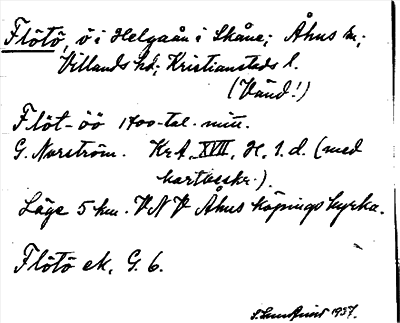 Flötö, ö i Helgaån i Skåne; Åhus sn;
Villands hd; Kristianstads l.
(Vänd!)
Flöt-öö 1700-tal. mitt.
G. Norström. KrA, XVII, H, 1.d. (med
kartbeskr.).
Läge 5 km. VNV Åhus köpings kyrka.
Flötö ek, G. 6.
1937.